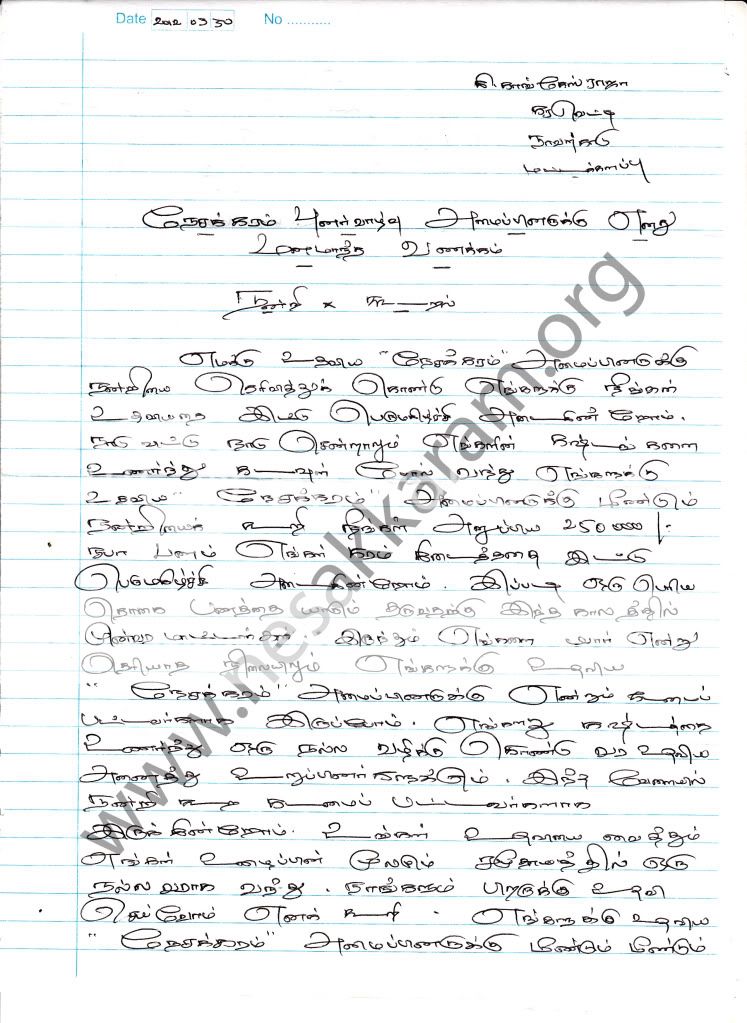 Date 2012 03 30 No ...........
கரவெட்டி
நாவற்காடு
மட்டக்களப்பு
நேசக்கரம் புனர்வாழ்வு அமைப்பினருக்கு எனது
உளமார்ந்த வணக்கம்
நன்றி x கூறல்
எமக்கு உதவிய "நேசக்கரம்" அமைப்பினருக்கு
நன்றியை தெரிவித்துக் கொண்டு எங்களுக்கு நீங்கள்
உதவியதை இட்டு பெருமகிழ்ச்சி அடைகின்றோம்.
நாடு விட்டு நாடு சென்றாலும் எங்களின் கஷ்டங்களை
உணர்ந்து கடவுள் போல வந்து எங்களுக்கு
உதவிய "நேசக்கரம்" அமைப்பினருக்கு மீண்டும்
நன்றியைக் கூறி நீங்கள் அனுப்பிய 250000/-
ரூபா பணம் எங்கள் கரம் கிடைத்ததை இட்டு
பெருமகிழ்ச்சி அடைகின்றோம். இப்படி ஒரு பெரிய
தொகை பணத்தை யாரும் தருவதற்கு இந்த காலத்தில்
இருந்தும் எங்களை யார் என்று
தெரியாத நிலையிலும் எங்களுக்கு உதவிய
"நேசக்கரம்" அமைப்பினருக்கு என்றும் கடமைப்
பட்டவர்களாக இருப்போம். எங்களது கஷ்டத்தை
உணர்ந்து ஒரு நல்ல வழிக்கு கொண்டு வர உதவிய
அனைத்து உறுப்பினர்களுக்கும். இந்த வேளையில்
நன்றி கூற கடமைப் பட்டவர்களாக
இருக்கின்றோம். உங்கள் உதவியை வைத்தும்
எங்கள் உழைப்பின் மூலமும் சமூகத்தில் ஒரு
நல்ல வந்து. நாங்களும் பிறருக்கு உதவி
செய்வோம் எனக் கூறி. எங்களுக்கு உதவிய
"நேசக்கரம்" அமைப்பினருக்கு மீண்டும் மீண்டும்
www.nesakkaram.org